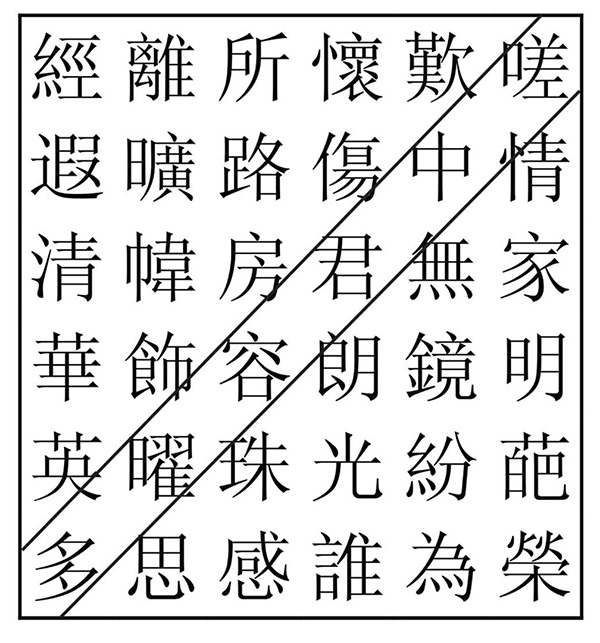 經離所懷歎嗟
遐曠路傷中情
清幃房君無家
華飾容朗鏡明
英曜珠光紛葩
多思感誰為榮